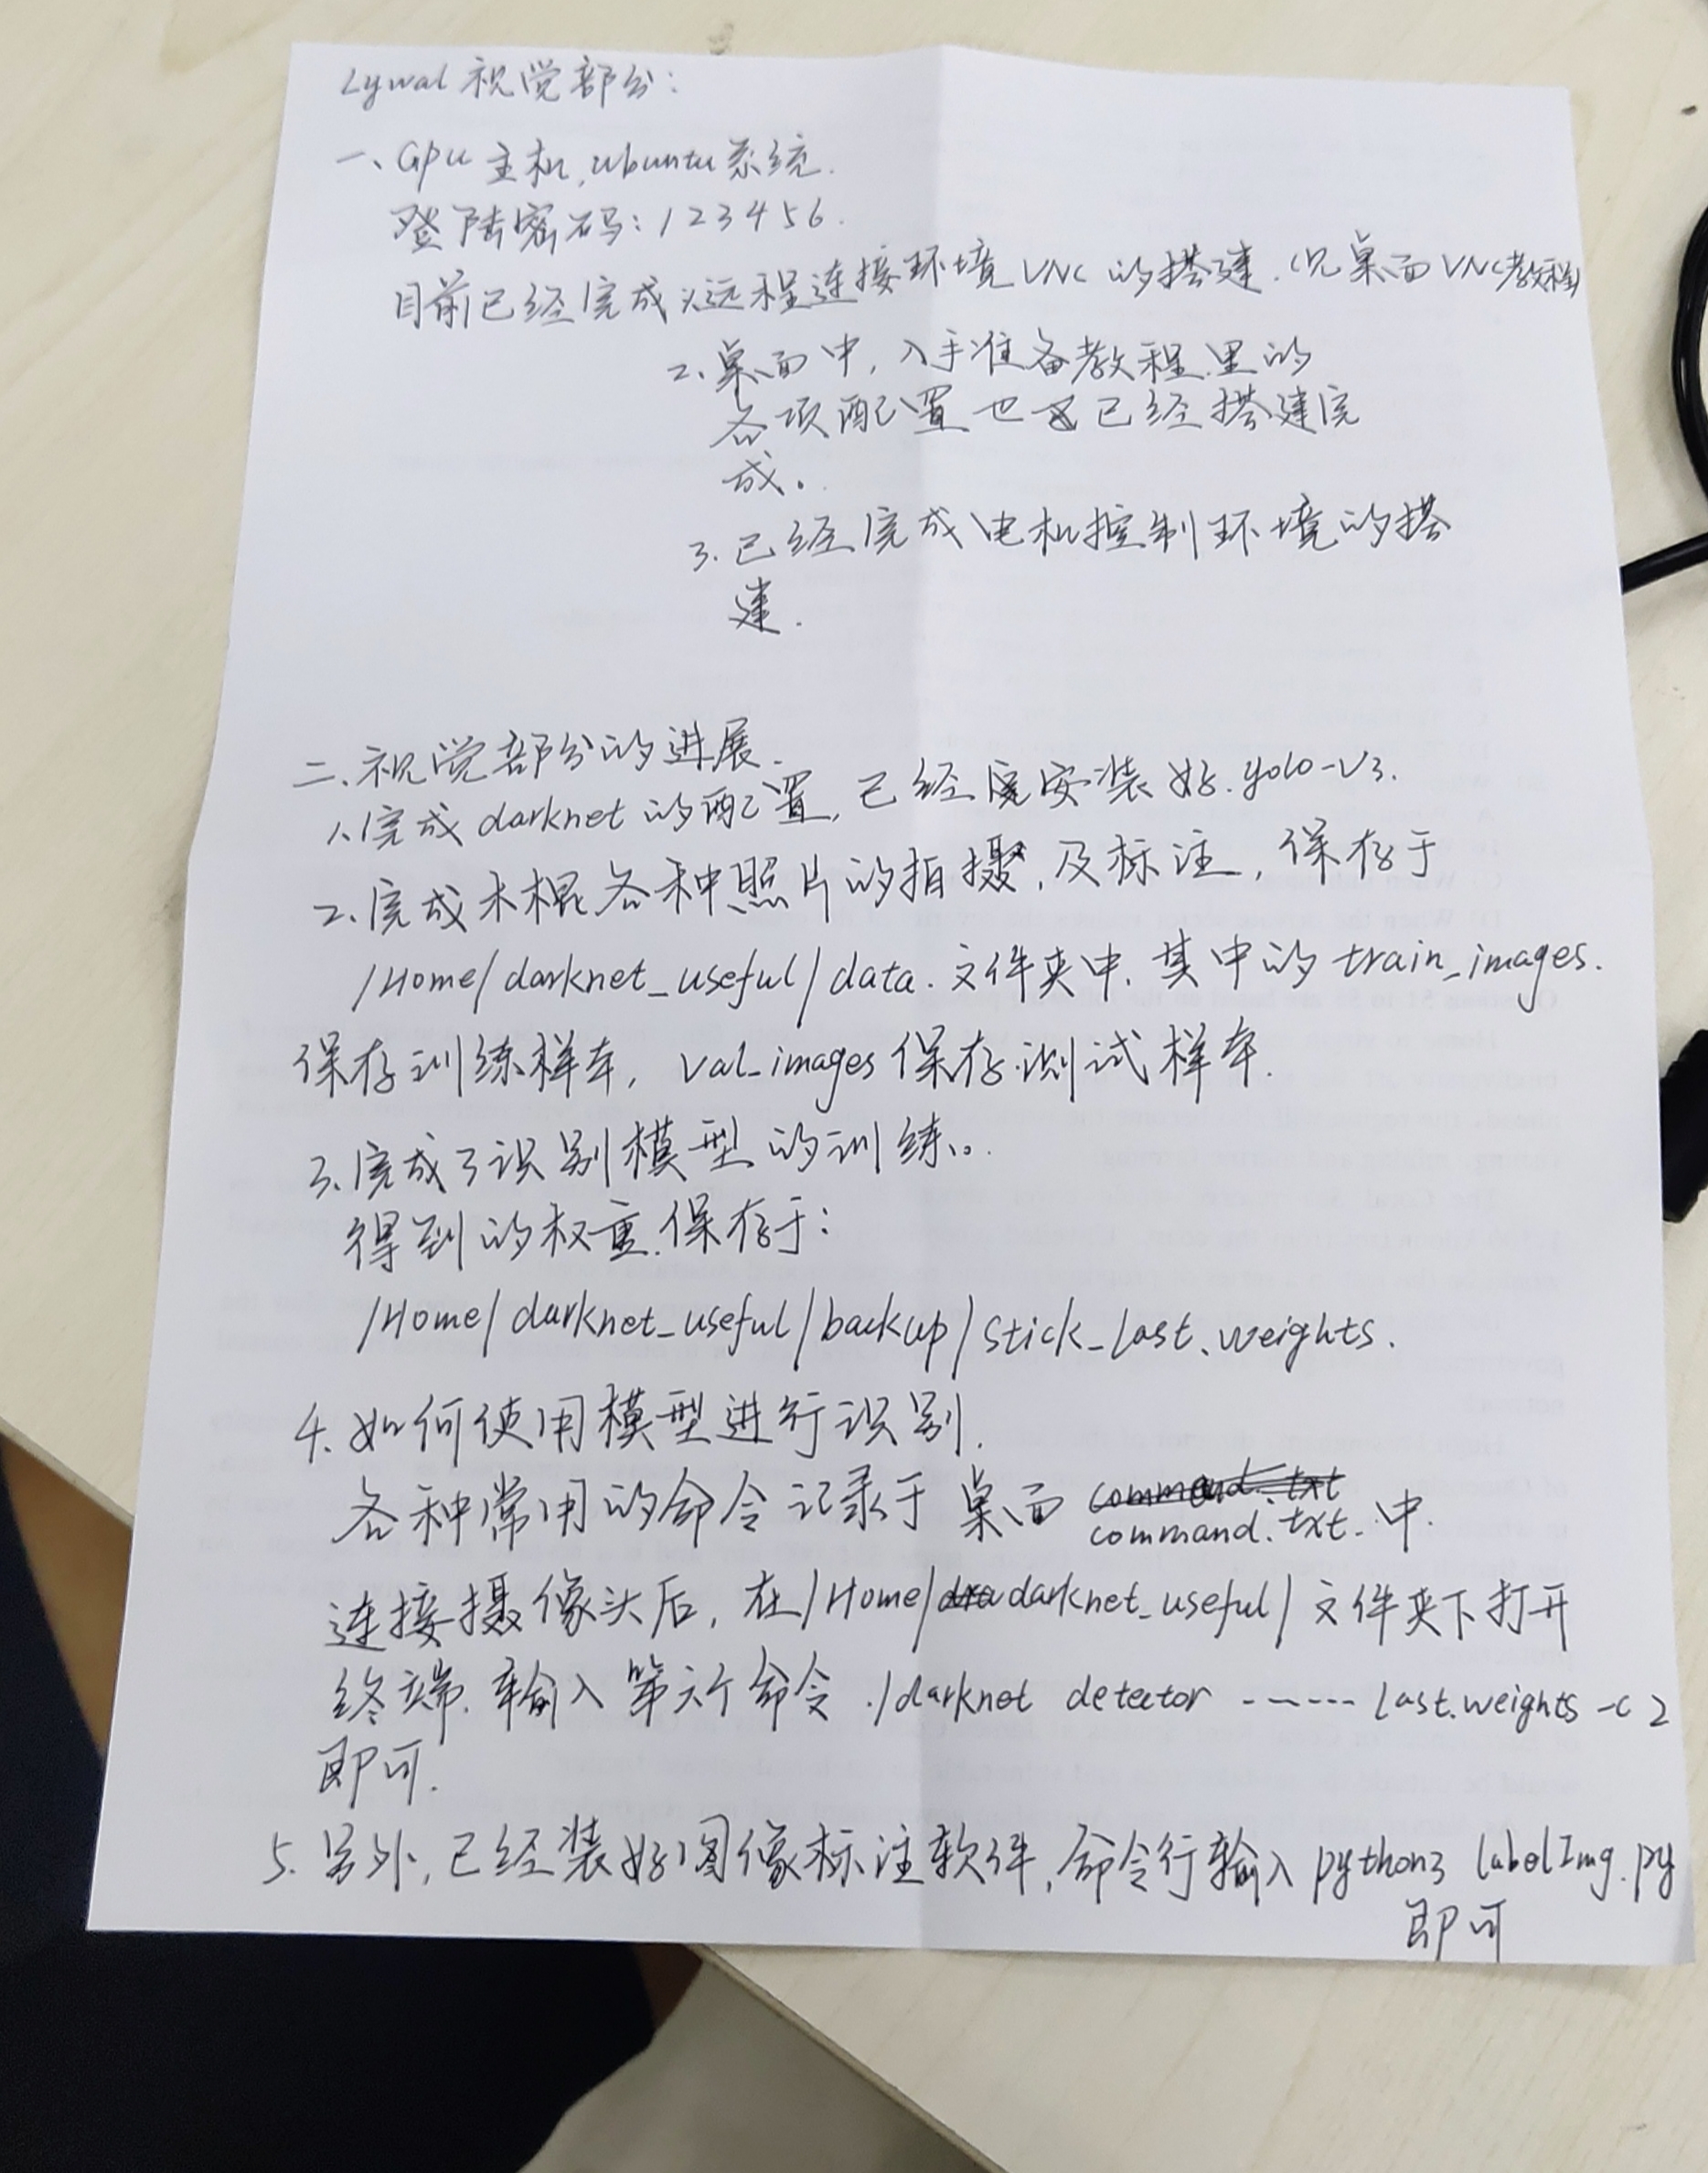 Lywal 视觉部分:
一、Gpu 主机,ubuntu系统.
登陆密码:123456.
目前已经完成 1.远程连接环境 VNC 的搭建.(见桌面VNC教程)
2.桌面中,入手准备教程里的
各项配置也已经搭建完
成。
3.已经完成电机控制环境的搭
建.
二、视觉部分的进展.
1.完成darknet的配置,已经安装好.yolo-v3.
2.完成木棍各种照片的拍摄,及标注,保存于
/Home/darknet_useful/data.文件夹中.其中的train_images.
保存训练样本,val_images保存测试样本.
3.完成了识别模型的训练。
得到的权重.保存于:
/Home/darknet_useful/backup/stick_last.weights.
4.如何使用模型进行识别.
各种常用的命令记录于桌面 command.txt.中.
连接摄像头后,在/Home/darknet_useful/文件夹下打开
终端.输入第六个命令 ./darknet detector ------ last.weights -c 2
即可.
5.另外,已经装好图像标注软件,命令行输入python3 labelImg.py
即可